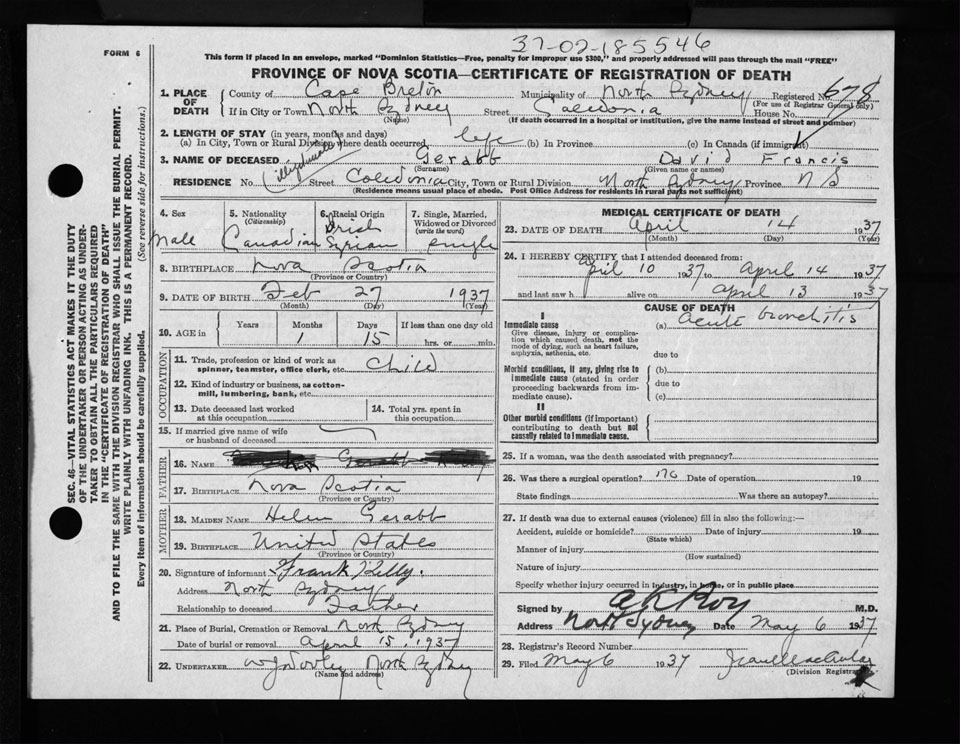 37-02-185546
FORM 6
This form if placed in an envelope, marked "Dominion Statistics—Free, penalty for improper use $300," and properly addressed will pass through the mail "FREE"
PROVINCE OF NOVA SCOTIA—CERTIFICATE OF REGISTRATION OF DEATH
SEC. 46—VITAL STATISTICS ACT MAKES IT THE DUTY
OF THE UNDERTAKER OR PERSON ACTING AS UNDER-
TAKER TO OBTAIN ALL THE PARTICULARS REQUIRED
IN THE "CERTIFICATE OF REGISTRATION OF DEATH"
AND TO FILE THE SAME WITH THE DIVISION REGISTRAR WHO SHALL ISSUE THE BURIAL PERMIT.
WRITE PLAINLY WITH UNFADING INK. THIS IS A PERMANENT RECORD.
Every item of information should be carefully supplied. (See reverse side for instructions.)
1. PLACE OF DEATH
County of Cape Breton Municipality of North Sydney Registered No. 678
(For use of Registrar General only)
If in City or Town North Sydney Street Caledonia House No.
(Name) (If death occurred in a hospital or institution, give the name instead of street and number)
2. LENGTH OF STAY (in years, months and days)
(a) In City, Town or Rural Division where death occurred life (b) In Province (c) In Canada (if immigrant)
3. NAME OF DECEASED Gerabb David Francis
(Surname) (Given name or names)
(illegitimate)
RESIDENCE No. Street Caledonia City, Town or Rural Division North Sydney Province N S
(Residence means usual place of abode. Post Office Address for residents in rural parts not sufficient)
4. Sex
Male
5. Nationality
(Citizenship)
Canadian
6. Racial Origin
Irish
Syrian
7. Single, Married,
Widowed or Divorced
(write the word)
single
8. BIRTHPLACE Nova Scotia
(Province or Country)
9. DATE OF BIRTH Feb 27 1937
(Month) (Day) (Year)
10. AGE in Years Months Days If less than one day old
1 15 hrs. or min.
OCCUPATION
11. Trade, profession or kind of work as
spinner, teamster, office clerk, etc. Child
12. Kind of industry or business, as cotton-
mill, lumbering, bank, etc.
13. Date deceased last worked
at this occupation
14. Total yrs. spent in
this occupation
15. If married give name of wife
or husband of deceased
FATHER
16. NAME Gerabb
17. BIRTHPLACE Nova Scotia
(Province or Country)
MOTHER
18. MAIDEN NAME Helen Gerabb
19. BIRTHPLACE United States
(Province or Country)
20. Signature of informant Frank Kelly.
Address North Sydney
Relationship to deceased Father
21. Place of Burial, Cremation or Removal North Sydney
Date of burial or removal April 15, 1937
22. UNDERTAKER North Sydney
(Name and address)
MEDICAL CERTIFICATE OF DEATH
23. DATE OF DEATH April 14 1937
(Month) (Day) (Year)
24. I HEREBY CERTIFY that I attended deceased from:
April 10 1937 to April 14 1937
and last saw h alive on April 13 1937
CAUSE OF DEATH
I
Immediate cause
Give disease, injury or complica-
tion which caused death, not the
mode of dying, such as heart failure,
asphyxia, asthenia, etc.
(a) Acute bronchitis
due to
Morbid conditions, if any, giving rise to
immediate cause (stated in order
proceeding backwards from im-
mediate cause).
(b)
due to
(c)
II
Other morbid conditions (if important)
contributing to death but not
causally related to immediate cause.
25. If a woman, was the death associated with pregnancy?
26. Was there a surgical operation? no Date of operation 19
State findings Was there an autopsy?
27. If death was due to external causes (violence) fill in also the following:—
Accident, suicide or homicide? Date of injury 19
(State which)
Manner of injury
(How sustained)
Nature of injury
Specify whether injury occurred in industry, in home, or in public place
Signed by A K Roy M.D.
Address North Sydney Date May 6 1937
28. Registrar's Record Number
29. Filed May 6 1937
(Division Registrar)